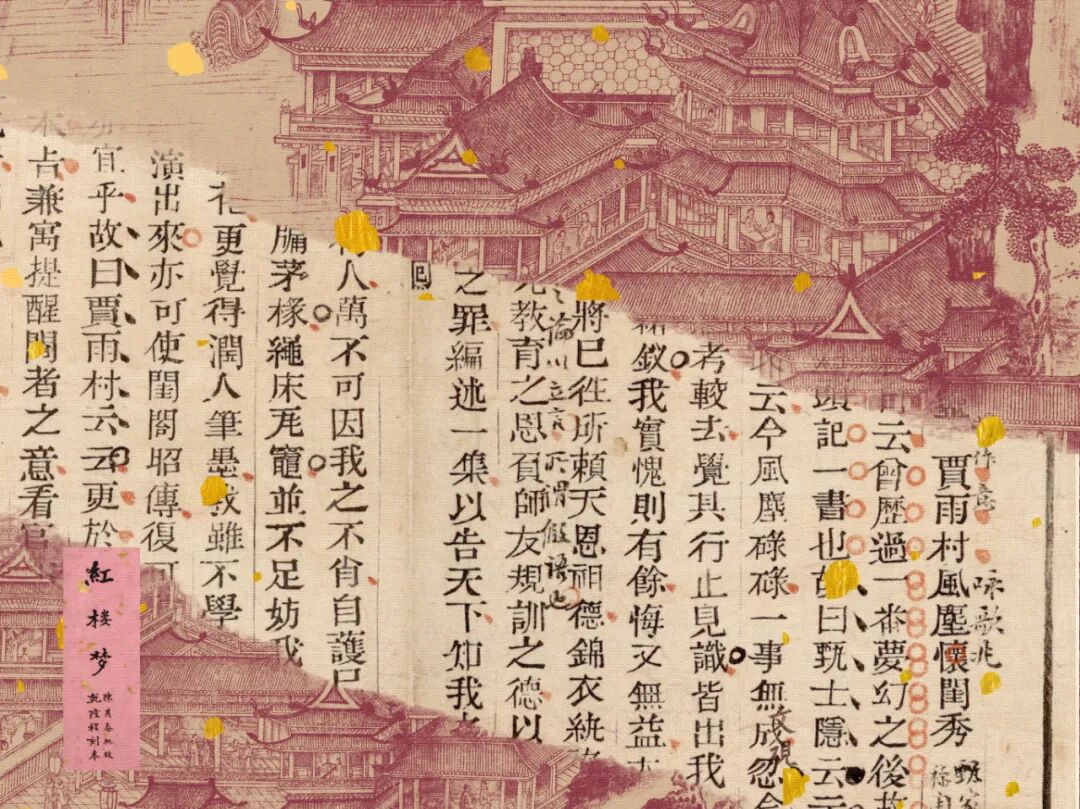 賈雨村風塵懷閨秀
云曾歷過一番夢幻之後故
頭記一書也故曰甄士隱云云
云今風塵碌碌一事無成忽
考較去覺其行止見識皆出我
釵我實愧則有餘悔又無益
將已徃所賴天恩祖德錦衣紈
立言所謂假語也
教育之恩負師友規訓之德以
之罪編述一集以告天下知我
人萬不可因我之不肖自護已
牖茅椽繩床瓦竈並不足妨我
更覺得潤人筆墨我雖不學
演出來亦可使閨閣昭傳復可
宜乎故曰賈雨村云云更於
旨兼寓提醒閱者之意看官
紅樓夢
陳其泰批校
乾隆程刻本